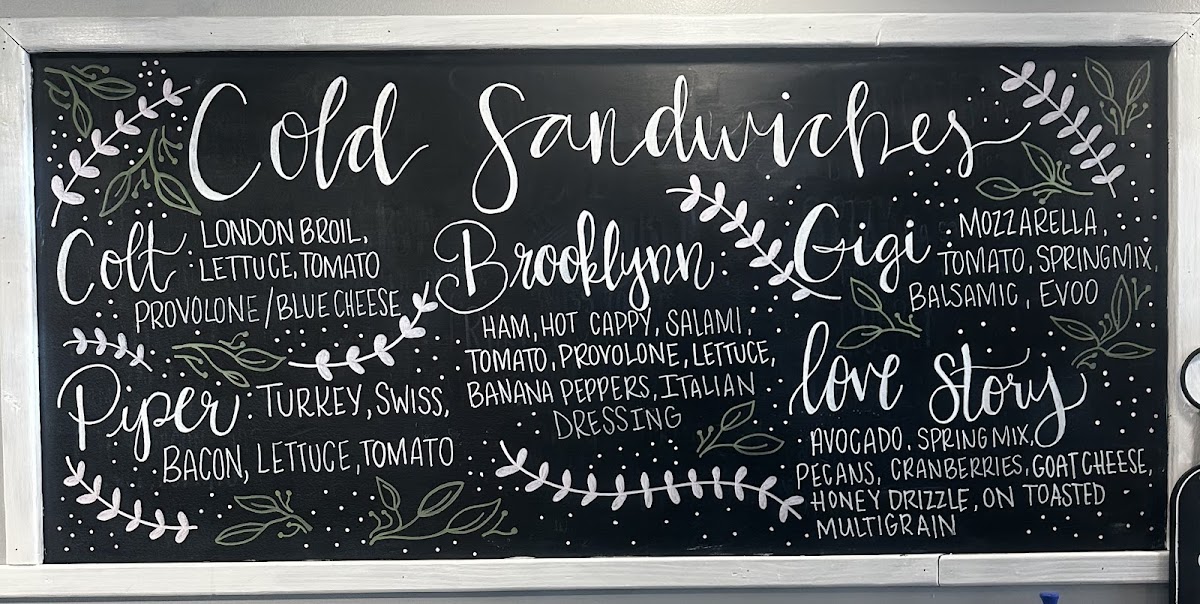 Cold Sandwiches
Colt: LONDON BROIL,
LETTUCE, TOMATO
PROVOLONE/BLUE CHEESE
Piper: TURKEY, SWISS,
BACON, LETTUCE, TOMATO
Brooklynn:
HAM, HOT CAPPY, SALAMI,
TOMATO, PROVOLONE, LETTUCE,
BANANA PEPPERS, ITALIAN
DRESSING
Gigi: MOZZARELLA,
TOMATO, SPRING MIX,
BALSAMIC, EVOO
love story:
AVOCADO, SPRING MIX,
PECANS, CRANBERRIES, GOAT CHEESE,
HONEY DRIZZLE, ON TOASTED
MULTIGRAIN